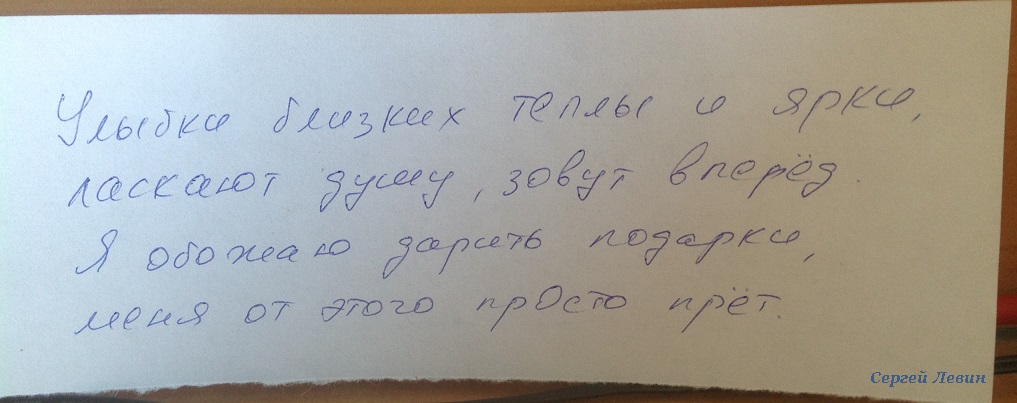 Улыбки близких теплы и ярки,
ласкают душу, зовут вперёд.
Я обожаю дарить подарки,
меня от этого просто прёт.
Сергей Левин